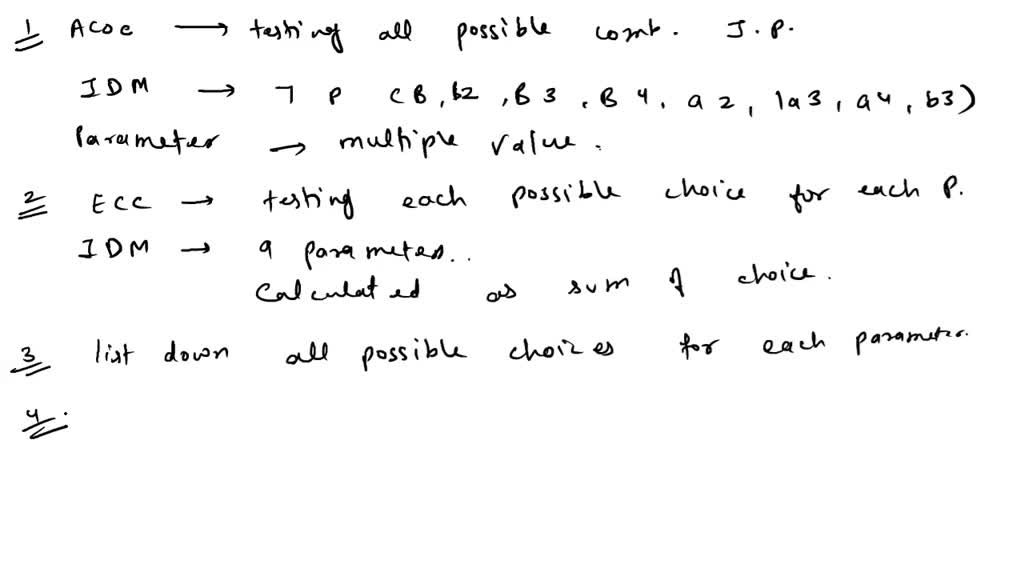 1 ACOC → testing all possible comb. I.P.
IDM → 7 P (B, b2, B3, B4, a2, 1a3, a4, b3)
Parameter → multiple value.
2 ECC → testing each possible choice for each P.
IDM → 9 parameters..
Calculated as sum of choice.
3 list down all possible choices for each parameter.
4.